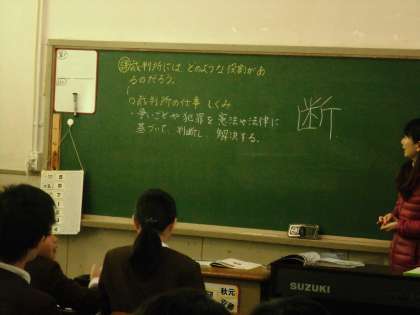 裁判所には、どのような役割があ
るのだろう。
裁判所の仕事 しくみ
・争いごとや犯罪を憲法や法律に
基づいて、判断し 解決する。
断
秋元
SUZUKI